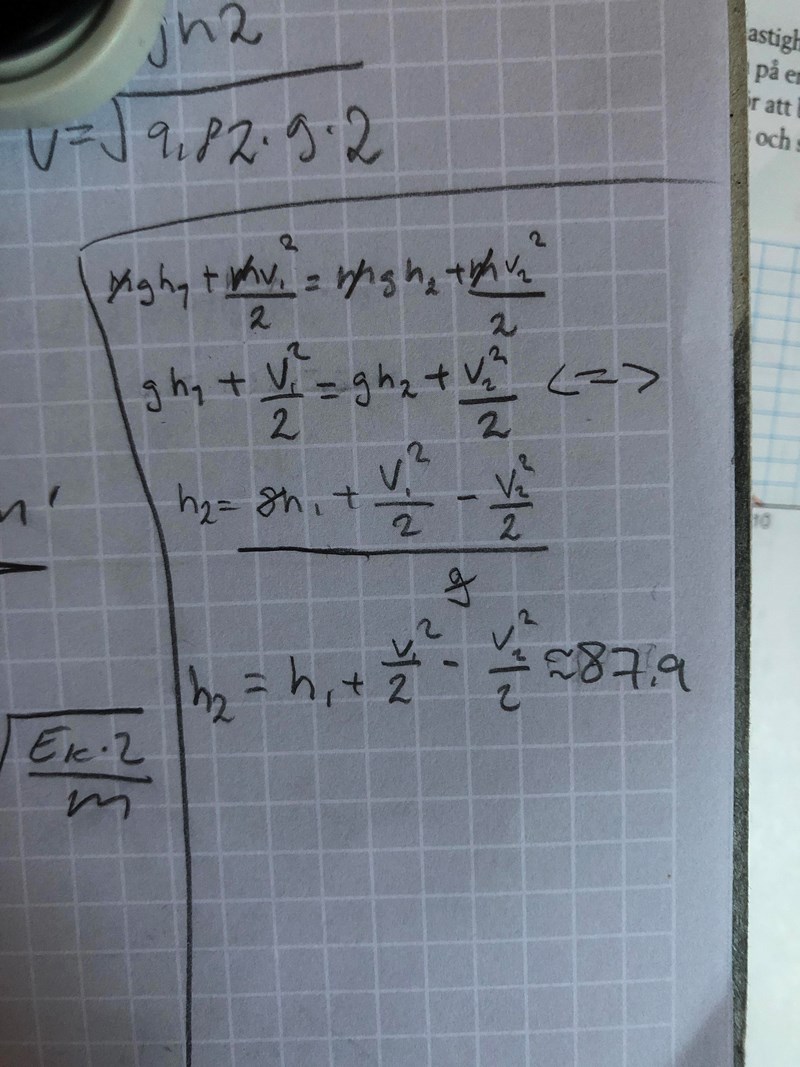 gh2
V=√9,82·9·2
mgh₁ + mv₁²/2 = mgh₂ + mv₂²/2
gh₁ + V₁²/2 = gh₂ + V₂²/2 <=>
h₂ = (gh₁ + V₁²/2 - V₂²/2)/g
h₂ = h₁ + V₁²/2 - V₂²/2 ≈87,9
√(Ek·2/m)
på
att
och
10